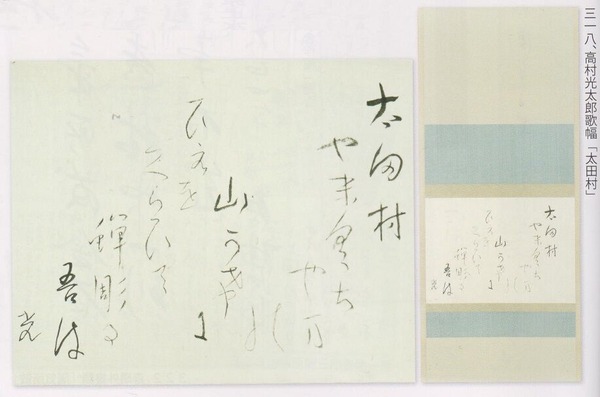 三一八、高村光太郎歌幅「太田村」
太田村
やまぐち
やま
の
山かげに
ひえを
くらひて
蟬彫る
吾は
光